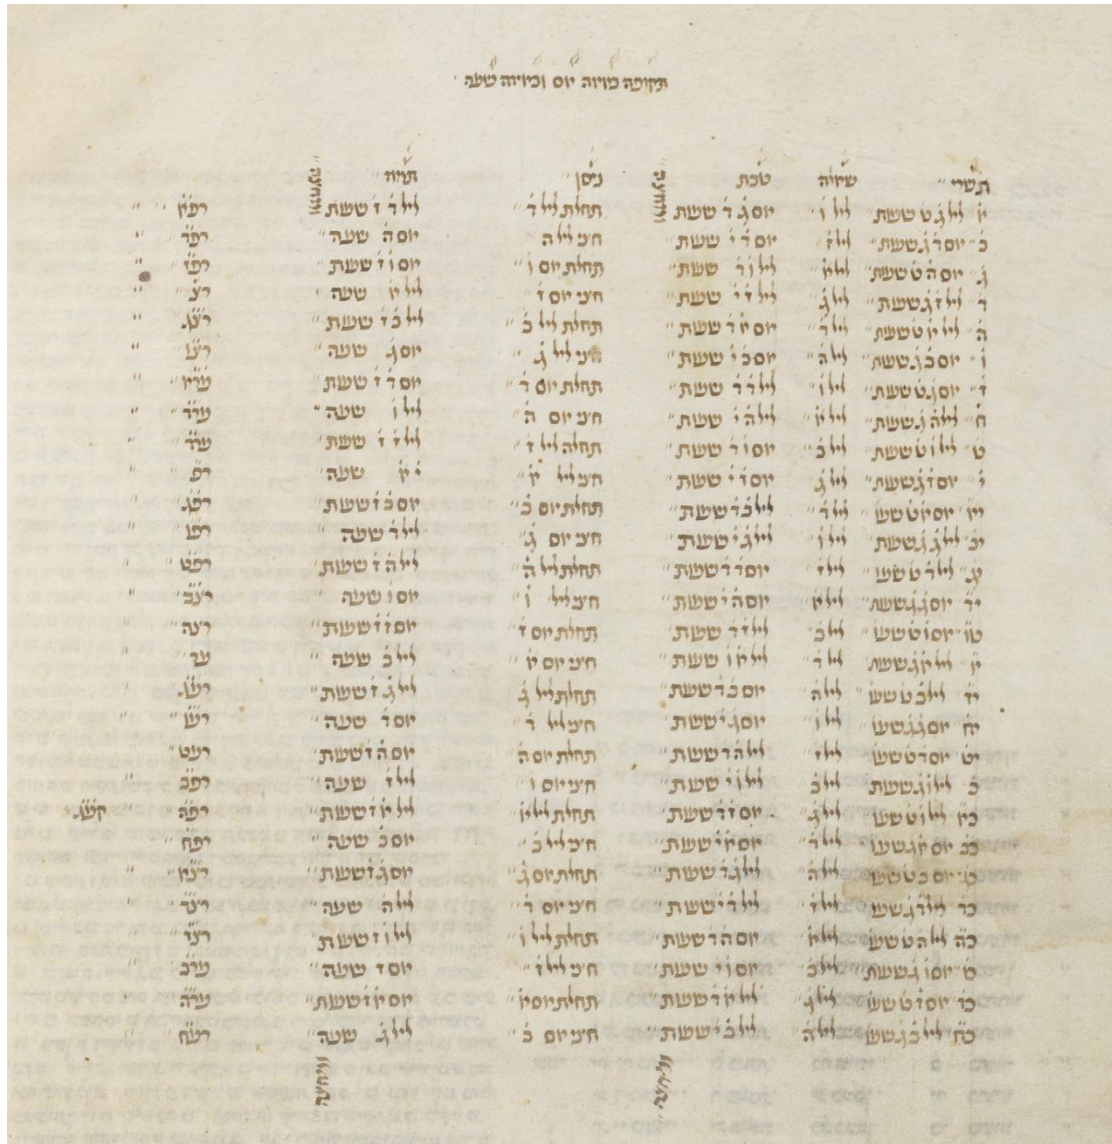 תקופה באיזה יום ובאיזה שעה
תשרי שאילה טבת ומחצה ניסן תמוז ומחצה
א ליל ג ט שעת ליל ו יום ג ד שעת תחלת ליל ד ליל ד ז שעת רפא
ב יום ד ג שעת ליל ז יום ד י שעת חצי ליל ה יום ה שעה רפד
ג יום ה ט שעת ליל א ליל ו ד שעת תחלת יום ו יום ו ז שעת רפז
ד ליל ז ג שעת ליל ג ליל ז י שעת חצי יום ז ליל א שעה רצ
ה ליל א ט שעת ליל ד יום א ד שעת תחלת ליל ב ליל ב ז שעת רצג
ו יום ב ג שעת ליל ה יום ב י שעת חצי ליל ג יום ג שעה רצו
ז יום ג ט שעת ליל ו ליל ד ד שעת תחלת יום ד יום ד ז שעת ערא
ח ליל ה ג שעת ליל א ליל ה י שעת חצי יום ה ליל ו שעה ערד
ט ליל ו ט שעת ליל ב יום ו ד שעת תחלה ליל ז ליל ז ז שעת
י יום ז ג שעת ליל ג יום ז י שעת חצי ליל א י א שעה רפ
יא יום א ט שע ליל ד ליל ב ד שעת תחלת יום ב יום ב ז שעת רפג
יב ליל ג ג שעת ליל ו ליל ג י שעת חצי יום ג ליל ד שעה רפו
יג ליל ד ט שע ליל ז יום ד ד שעת תחלת ליל ה ליל ה ז שעת רפט
יד יום ה ג שעת ליל א יום ה י שעת חצי ליל ו יום ו שעה רצב
טו יום ו ט שע ליל ב ליל ז ד שעת תחלת יום ז יום ז ז שעת רצה
יו ליל א ג שעת ליל ד ליל א י שעת חצי יום א ליל ב שעה ער
יז ליל ב ט שע ליל ה יום ב ד שעת תחלת ליל ג ליל ג ז שעת רעג
יח יום ג ג שע ליל ו יום ג י שעת חצי ליל ד יום ד שעה רעו
יט יום ד ט שע ליל ז ליל ה ד שעת תחלת יום ה יום ה ז שעת רעט
כ ליל ו ג שעת ליל ב ליל ו י שעת חצי יום ו ליל ז שעה רפב
כא ליל ז ט שע ליל ג יום ז ד שעת תחלת ליל א ליל א ז שעת רפה
כב יום א ג שע ליל ד יום א י שעת חצי ליל ב יום ב שעה רפח
כג יום ב ט שע ליל ה ליל ג ד שעת תחלת יום ג יום ג ז שעת רצא
כד ליל ד ג שע ליל ז ליל ד י שעת חצי יום ד ליל ה שעה רצד
כה ליל ה ט שע ליל א יום ה ד שעת תחלת ליל ו ליל ו ז שעת רצז
כו יום ו ג שעת ליל ב יום ו י שעת חצי ליל ז יום ז שעה ערב
כז יום ז ט שע ליל ג ליל א ד שעת תחלת יום א יום א ז שעת ערה
כח ליל ב ג שע ליל ה ליל ב י שעת חצי יום ב ליל ג שעה רעח
ומחצה ומחצה